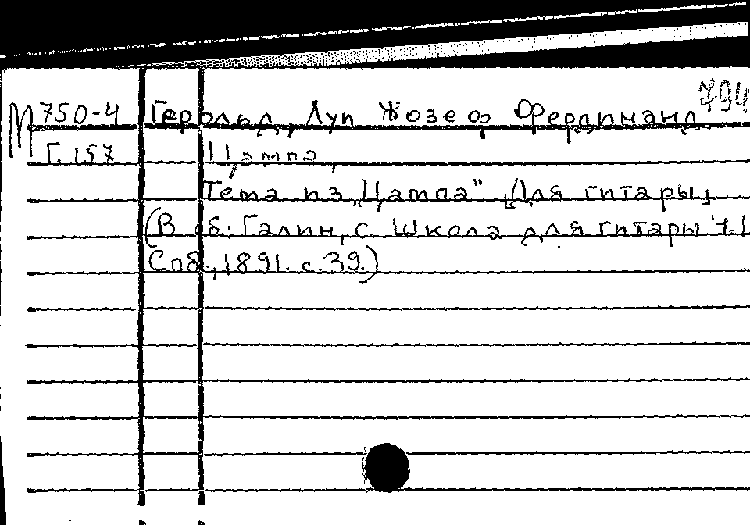 794
М 750-4 Герольд, Луи Жозеф Фердинанд
Г. 157 Цампа
Тема из „Цампа" [Для гитары]
(В сб: Галин, с. Школа для гитары ч.1
Спб, 1891. с. 39.)